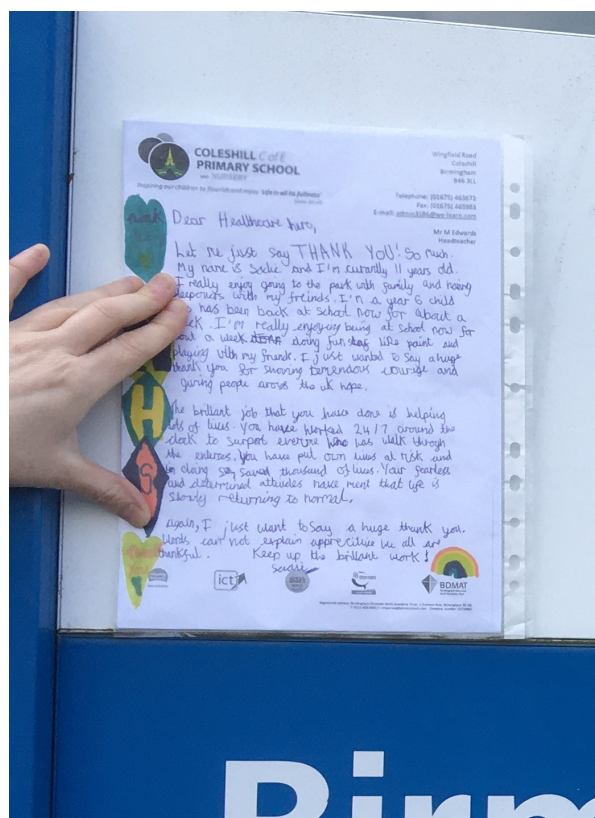 COLESHILL C of E
PRIMARY SCHOOL
AND NURSERY
Inspiring our children to flourish and enjoy 'life in all its fullness'
Wingfield Road
Coleshill
Birmingham
B46 3LL
Telephone: (01675) 463672
Fax: (01675)
E-mail:
Mr M Edwards
Headteacher
Dear Healthcare hero,
Let me just say THANK YOU! So much.
My name is Sadie and I'm currently 11 years old.
I really enjoy going to the park with family and having
sleepovers with my freinds. I'm a year 6 child
has been back at school now for about a
I'M really enjoying being at school now for
a week doing fun like paint and
playing with my friends. I just wanted to say a huge
thank you for showing temendous courage and
giving people across the uk hope.
The brillant job that you have done is helping
lots of lives. You have worked 24/7 around the
clock to support everyone who has walk throgh
the You have put own lives at risk and
in doing so, saved thousand of lives. Your fearless
and determined have ment that life is
slowly returning to normal.
Again, I just want to say a huge thank you.
Words can not explain we all are
thankful. Keep up the brillant work!
H
S
ict
BDMAT
Birm